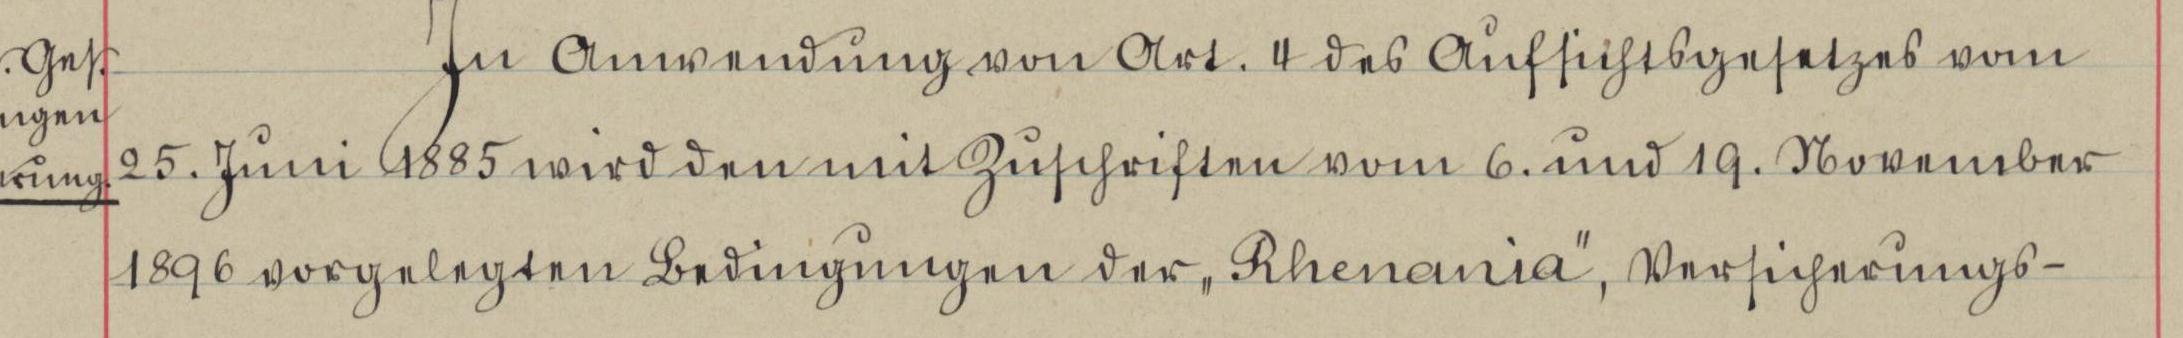 . Ges.
ngen
rung.
In Anwendung von Art. 4 des Aufsichtsgesetzes vom
25. Juni 1885 wird den mit Zuschriften vom 6. und 19. November
1896 vorgelegten Bedingungen der „Rhenania", Versicherungs-